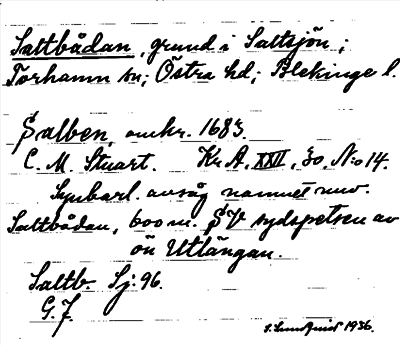 Saltbådan, grund i Saltsjön;
Torhamn sn; Östra hd; Blekinge l.
Salben, omkr. 1683.
C. M. Stuart. Kr. A. XXII, 30, N:o 14.
Synbarl. avsåg namnet nuv.
Saltbådan, 600 m. SV sydspetsen av
ön Utlängan.
Saltb. Sj: 96.
G. F.
S. Lundquist 1936.